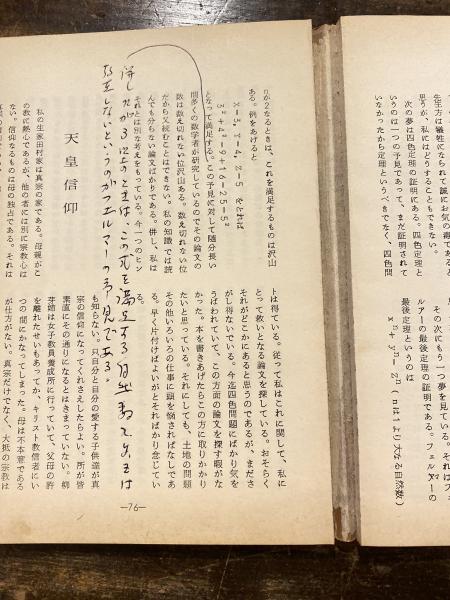 生主方は犠牲になられて誠にお気の毒である
思うが、私にはどうすることもできない。
次の夢は四色定理の証明にある。四色定理と
いうのは一つの予見であって、まだ証明されて
いなかったから定理というべきでなく、四色問
その次にもう一つ夢を見ている。それはフェ
ルマーの最後定理の証明である。フェルマーの
最後定理というのは
xⁿ+yⁿ=zⁿ (nは1より大なる自然数)
りが2なるときは、これを満足するものは沢山
ある。例をあげると
x=3, y=4, z=5 とすれば
3²+4²=9+16=25=5²
となって満足する。この予見に対して随分長い
間多くの数学者が研究しているのでその論文の
数は数え切れない位沢山ある。数え切れない位
だから又読むことはできない。私の知識では読
んでも分らない論文ばかりである。併し、私は
それとは別な考えをもっている。今一つのヒン
トは得ている。従って私はこれに関して、私に
とって救いとなる論文を探している。おそらく
それがどこかにあると思うのであるが、まださ
がし得ないでいる。今迄四色問題にばかり気を
うばわれていて、この方面の論文を探す暇がな
かった。本を書きあげたらこの方に取りかかり
たいと思っている。それにしても、土地の問題
その他いろいろの仕事に頭を悩されればなしであ
る。早く片付けばよいがとそればかり念じてい
る。
併しnが3以上のときは、この式を満足する自然数でx,y,zは
存在しないというのがフェルマーの予見である。
天皇信仰
私の生家田村家は真宗の家である。母親がこ
の教に熱心であるが、他の者には別に宗教心は
ない。信仰なるものは母の独占である。それは
も知らない。只自分と自分の愛する子供達が真
宗の信仰になってくれさえしたらよい。所が皆
素直にその通りになるとはきまっていない。姉
芽姉は女子教員養成所に行っていて、父母の許
を離れたせいもあってか、キリスト教信者にい
つの間にかなってしまった。母は不本意である
が仕方がない。真宗だけでなく、大抵の宗教は
—76—